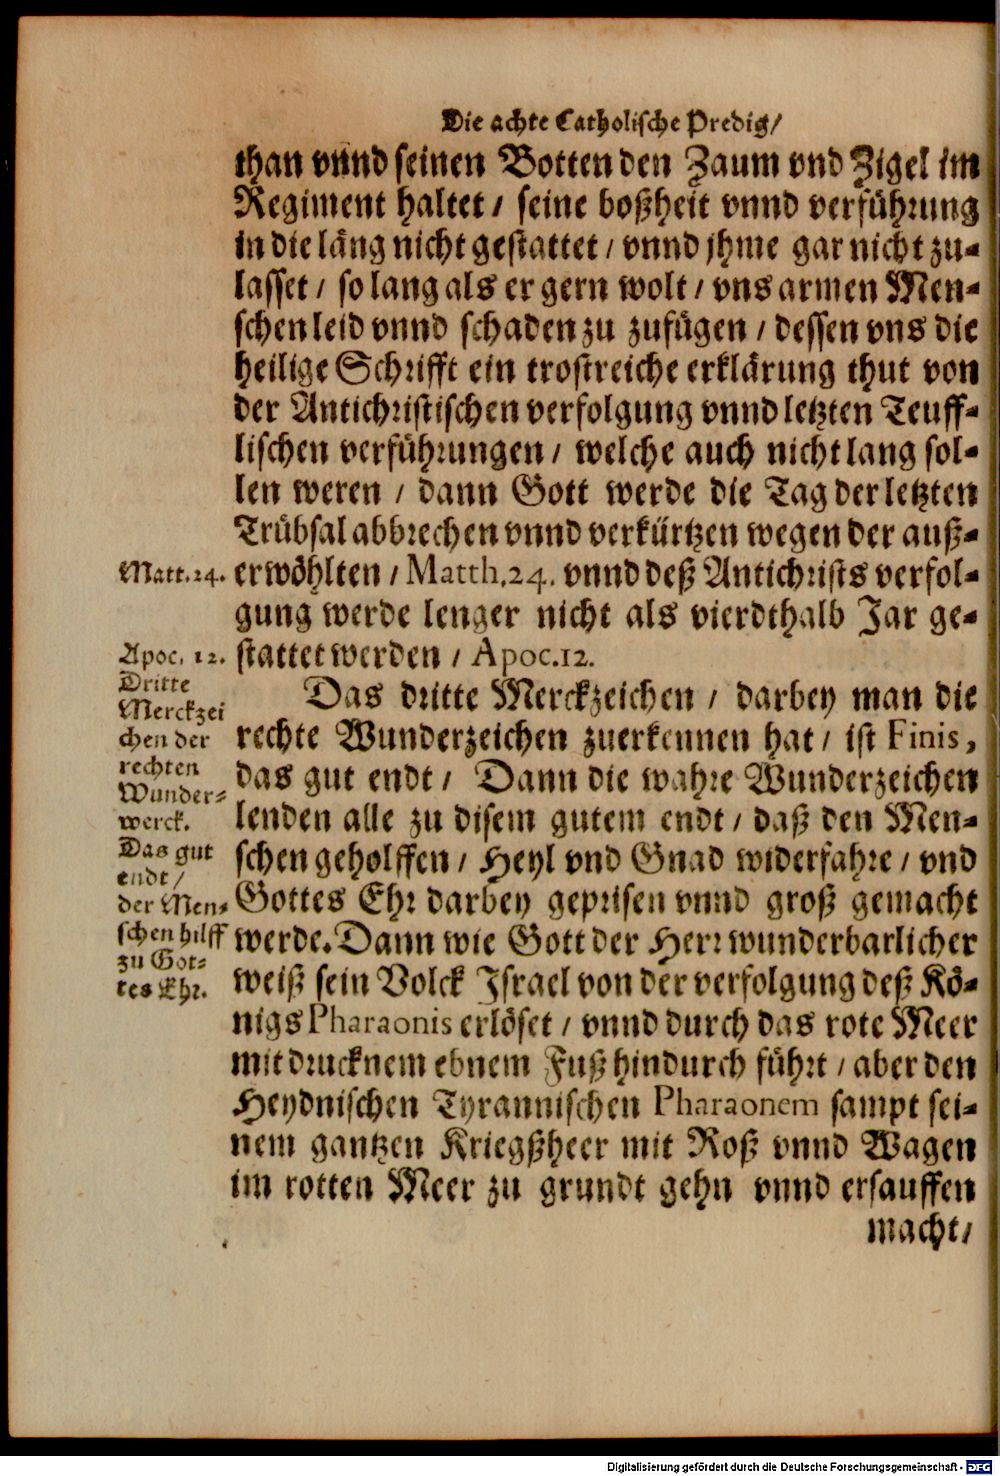 Die achte Catholische Predig/
than vnnd seinen Botten den Zaum vnd Zigel im
Regiment haltet/ seine boßheit vnnd verführung
in die läng nicht gestattet/ vnnd jhme gar nicht zu-
lasset/ so lang als er gern wolt/ vns armen Men-
schen leid vnnd schaden zu zufügen/ dessen vns die
heilige Schrifft ein trostreiche erklärung thut von
der Antichristischen verfolgung vnnd letzten Teuff-
lischen verführungen/ welche auch nicht lang sol-
len weren/ dann Gott werde die Tag der letzten
Trübsal abbrechen vnnd verkürtzen wegen der auß-
Matt.24.
erwöhlten/ Matth.24. vnnd deß Antichrists verfol-
gung werde lenger nicht als vierdthalb Jar ge-
Apoc. 12.
stattet werden/ Apoc.12.
Dritte
Merckzei
chen der
rechten
Wunder-
werck.
Das gut
endt/
der Men-
schen hilff
zu Got-
tes Ehr.
Das dritte Merckzeichen/ darbey man die
rechte Wunderzeichen zuerkennen hat/ ist Finis,
das gut endt/ Dann die wahre Wunderzeichen
lenden alle zu disem gutem endt/ daß den Men-
schen geholffen/ Heyl vnd Gnad widerfahre/ vnd
Gottes Ehr darbey geprisen vnnd groß gemacht
werde. Dann wie Gott der Herr wunderbarlicher
weiß sein Volck Israel von der verfolgung deß Kö-
nigs Pharaonis erlöset/ vnnd durch das rote Meer
mit drucknem ebnem Fuß hindurch führt/ aber den
Heydnischen Tyrannischen Pharaonem sampt sei-
nem gantzen Kriegßheer mit Roß vnnd Wagen
im rotten Meer zu grundt gehn vnnd ersauffen
macht/
Digitalisierung gefördert durch die Deutsche Forschungsgemeinschaft - DFG